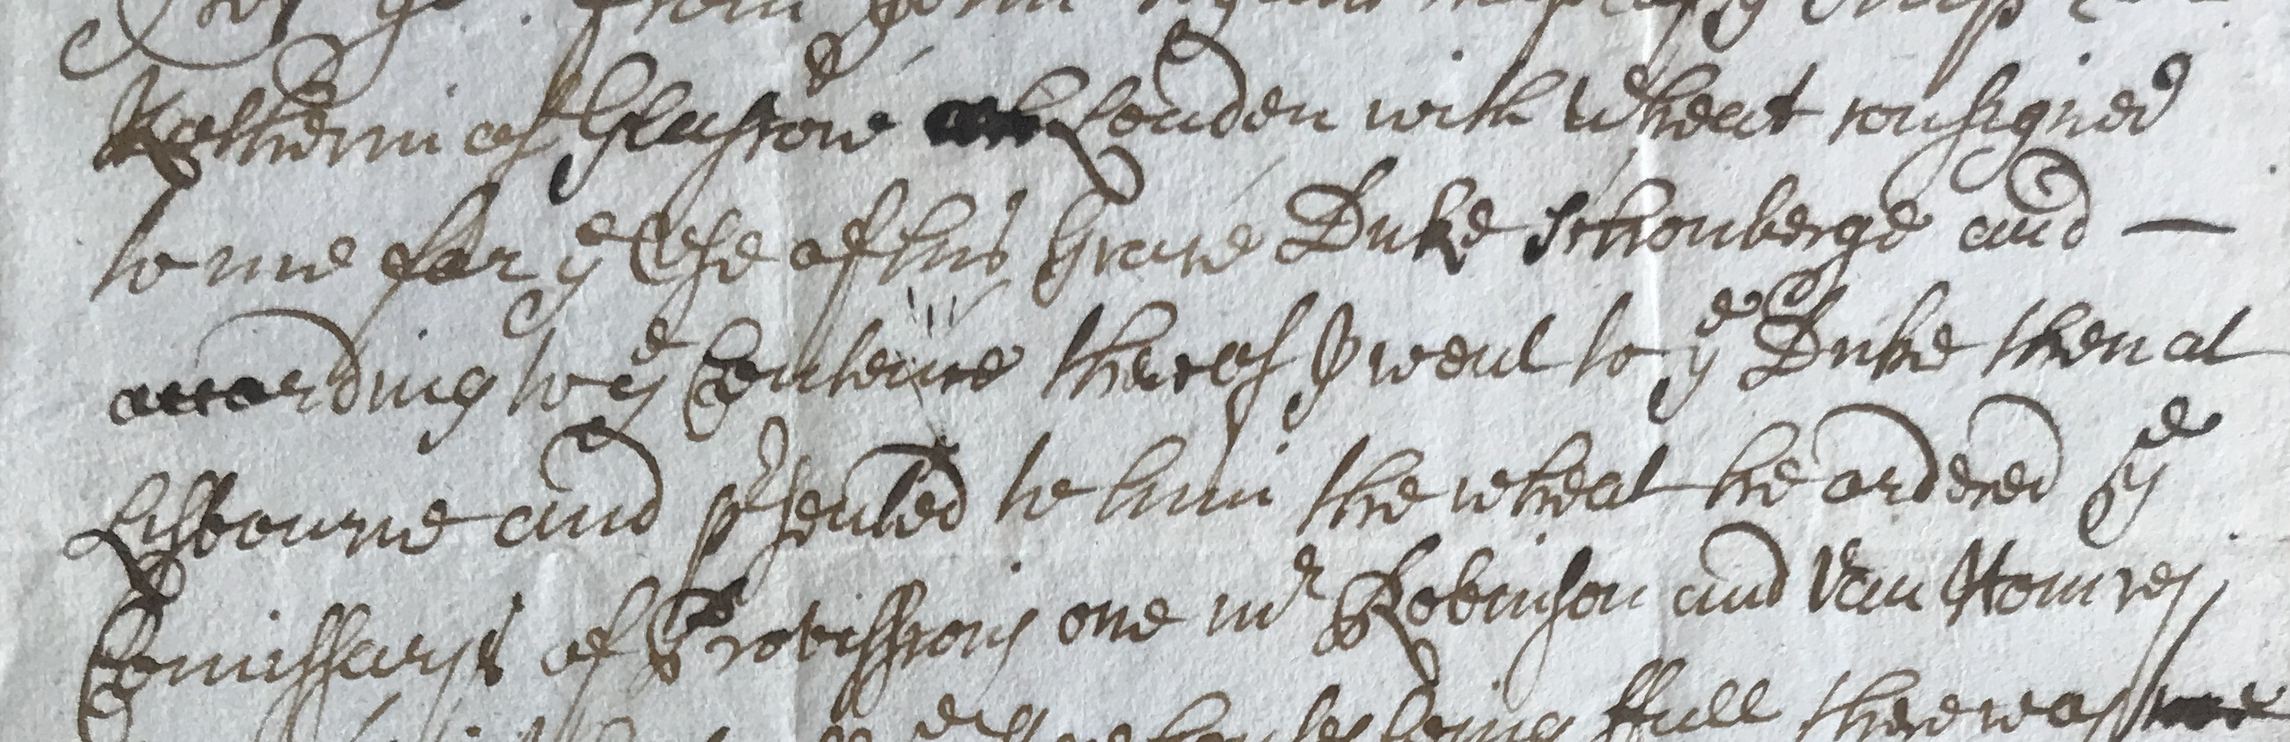 from
Katherin of Glasgow London with Wheat consigned
to me for ye Use of his Grace Duke Schonberge and —
according to ye Contence thereof I went to ye Duke then at
Lisbourne and prsented to him the wheat he ordered ye
Comissarys of Provissions one mr Robinson and Van Homrey
being ffull there was